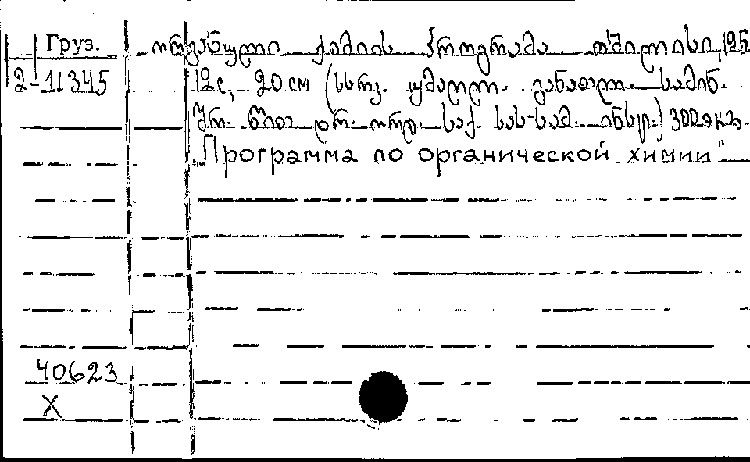 Груз.
2-11345
ორგანული ქიმიის პროგრამა თბილისი, 195
12с, 20см (სსრკ. უმაღლ. განათლ. სამინ.
შრ. წით. დრ. ორდ. საქ. სას-სამ. ინსტ.) 300 экз.
„Программа по органической химии"
40623
X